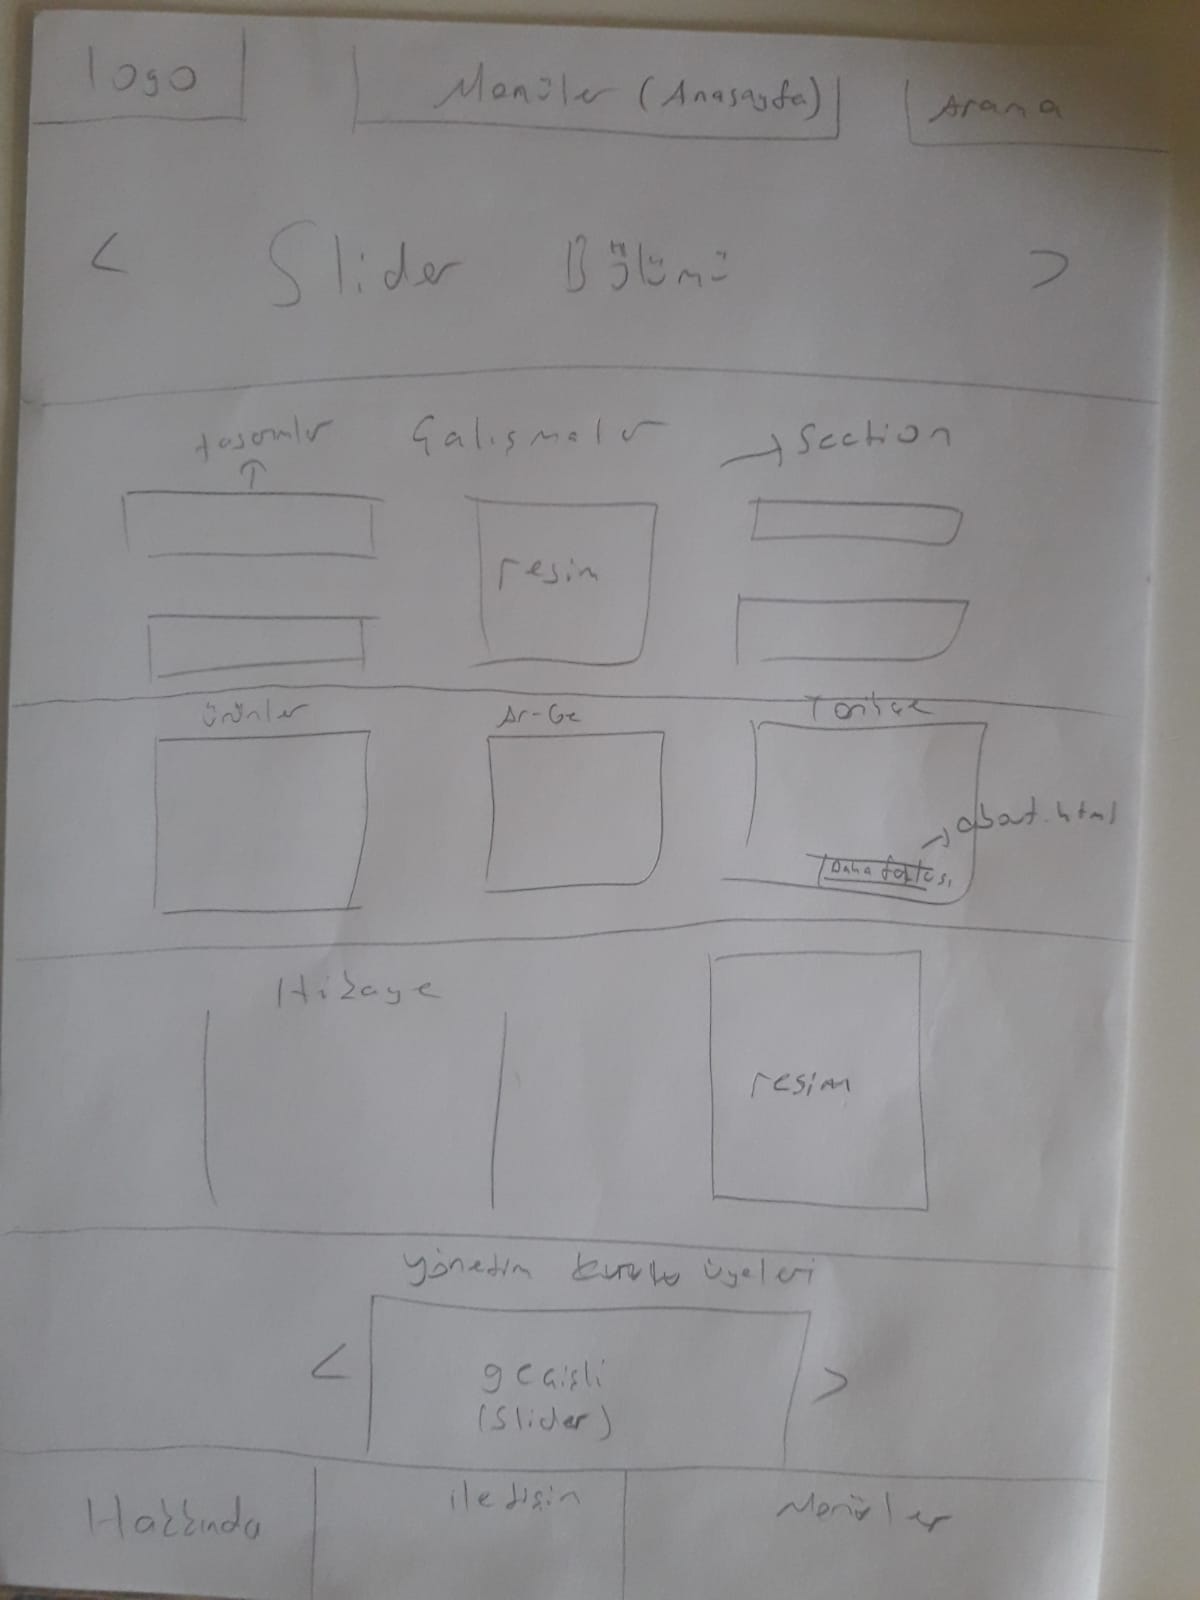 logo
Menüler (Anasayfa)
Arama
< Slider Bölümü >
tasarımlar
Çalışmalar
Section
resim
ürünler
Ar-Ge
Tarihçe
about.html
Daha fazlası
Hikaye
resim
yönetim kurulu üyeleri
< geçişli >
(Slider)
Hakkında
iletişim
Menüler